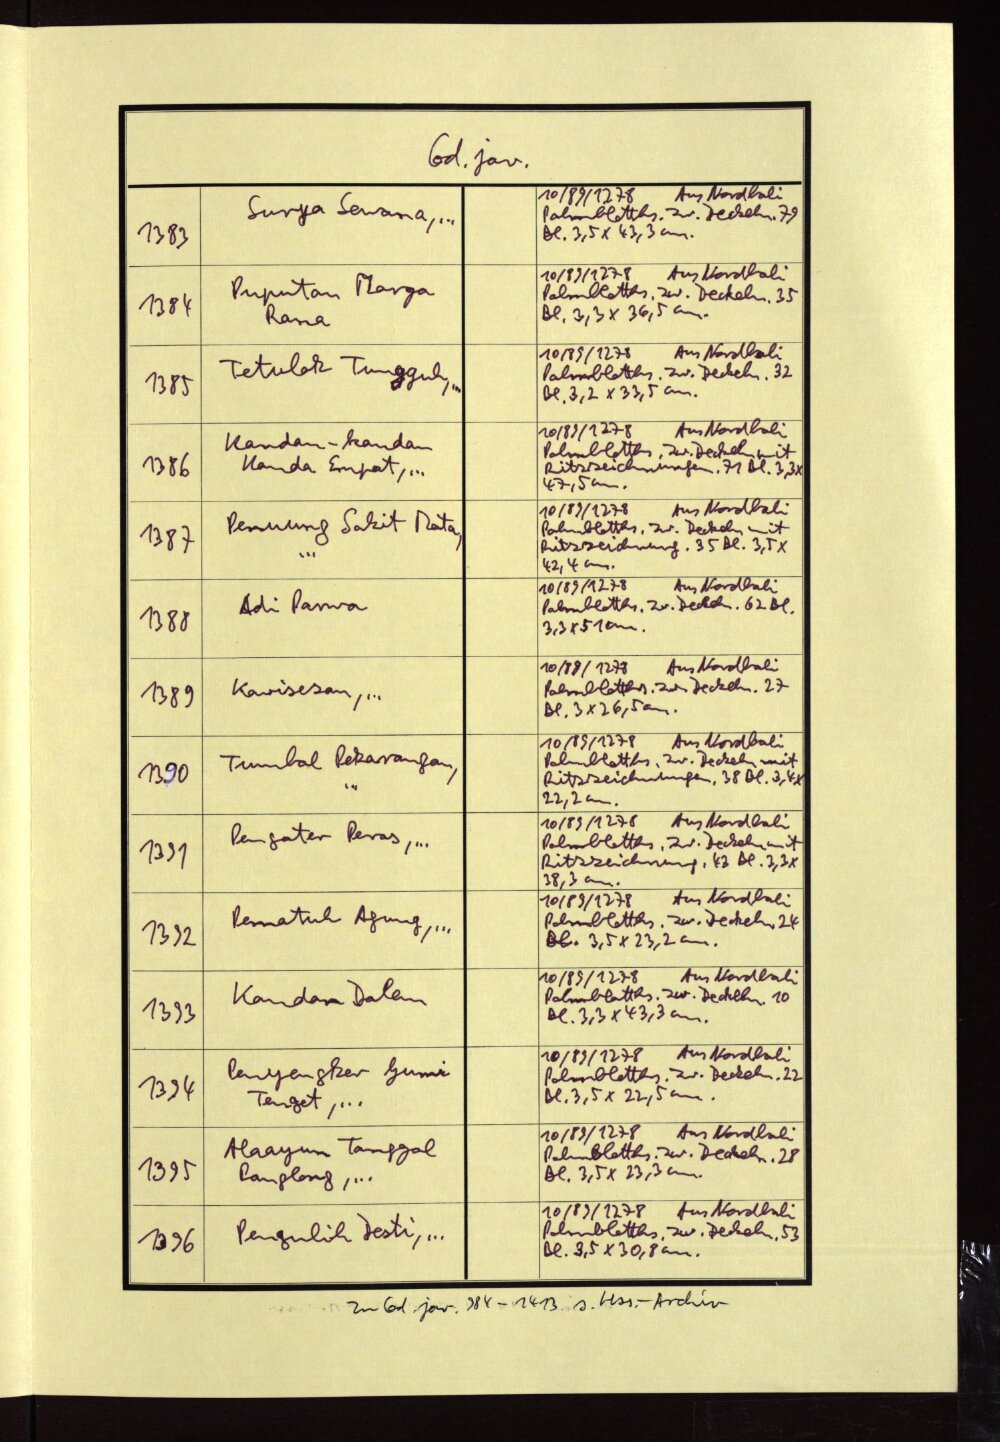 Cod. jav.
1383
Surya Sewana,...
10/89/1278 Aus Nordbali
Palmblatths. zw. Deckeln. 79
Bl. 3,5 x 43,3 cm.
1384
Puputan Marga
Rana
10/89/1278 Aus Nordbali
Palmblatths. zw. Deckeln. 35
Bl. 3,3 x 36,5 cm.
1385
Tetulak Tungguh,...
10/89/1278 Aus Nordbali
Palmblatths. zw. Deckeln. 32
Bl. 3,2 x 33,5 cm.
1386
Kandan-kandan
Kanda Empat,...
10/89/1278 Aus Nordbali
Palmblatths. zw. Deckeln mit
Ritzzeichnungen. 71 Bl. 3,3x
47,5 cm.
1387
Penuung Sakit Mata,
...
10/89/1278 Aus Nordbali
Palmblatths. zw. Deckeln mit
Ritzzeichnung. 35 Bl. 3,5 x
42,4 cm.
1388
Adi Parwa
10/89/1278 Aus Nordbali
Palmblatths. zw. Deckeln. 62 Bl.
3,3 x 51 cm.
1389
Kawisesan,...
10/89/1278 Aus Nordbali
Palmblatths. zw. Deckeln. 27
Bl. 3 x 26,5 cm.
1390
Tumbal Pekarangan,
...
10/89/1278 Aus Nordbali
Palmblatths. zw. Deckeln mit
Ritzzeichnungen. 38 Bl. 3,4x
22,2 cm.
1391
Pengater Peras,...
10/89/1278 Aus Nordbali
Palmblatths. zw. Deckeln mit
Ritzzeichnung. 43 Bl. 3,3x
38,3 cm.
1392
Pematuh Agung,...
10/89/1278 Aus Nordbali
Palmblatths. zw. Deckeln. 24
Bl. 3,5 x 23,2 cm.
1393
Kandan Dalem
10/89/1278 Aus Nordbali
Palmblatths. zw. Deckeln. 10
Bl. 3,3 x 43,3 cm.
1394
Penyengker Gumi
Tenget,...
10/89/1278 Aus Nordbali
Palmblatths. zw. Deckeln. 22
Bl. 3,5 x 22,5 cm.
1395
Alaayun Tanggal
Panglong,...
10/89/1278 Aus Nordbali
Palmblatths. zw. Deckeln. 28
Bl. 3,5 x 23,3 cm.
1396
Pengulih Desti,...
10/89/1278 Aus Nordbali
Palmblatths. zw. Deckeln. 53
Bl. 3,5 x 30,8 cm.
Zu Cod. jav. 984 - 1413 s. Hss.-Archiv